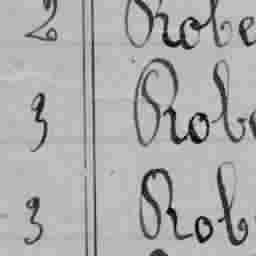 2 Robe
3 Rob
3 Rob